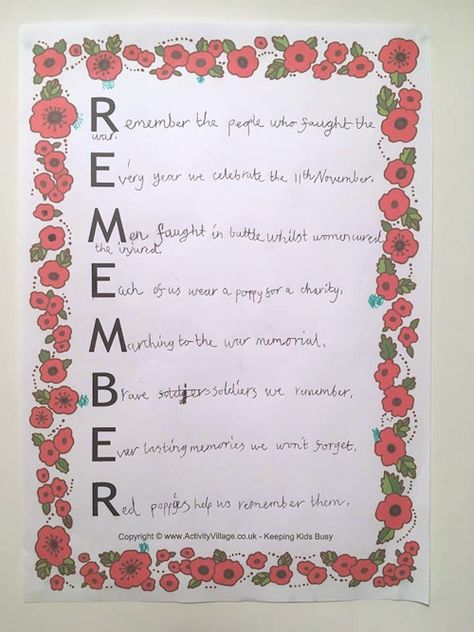 Remember the people who faught the
war.
Every year we celebrate the 11th November.
Men faught in battle whilst women cured
the injured.
Each of us wear a poppy for a charity.
Marching to the war memorial.
Brave soldiers soldiers we remember.
Ever lasting memories we won't forget.
Red poppies help us remember them.
Copyright © www.ActivityVillage.co.uk - Keeping Kids Busy